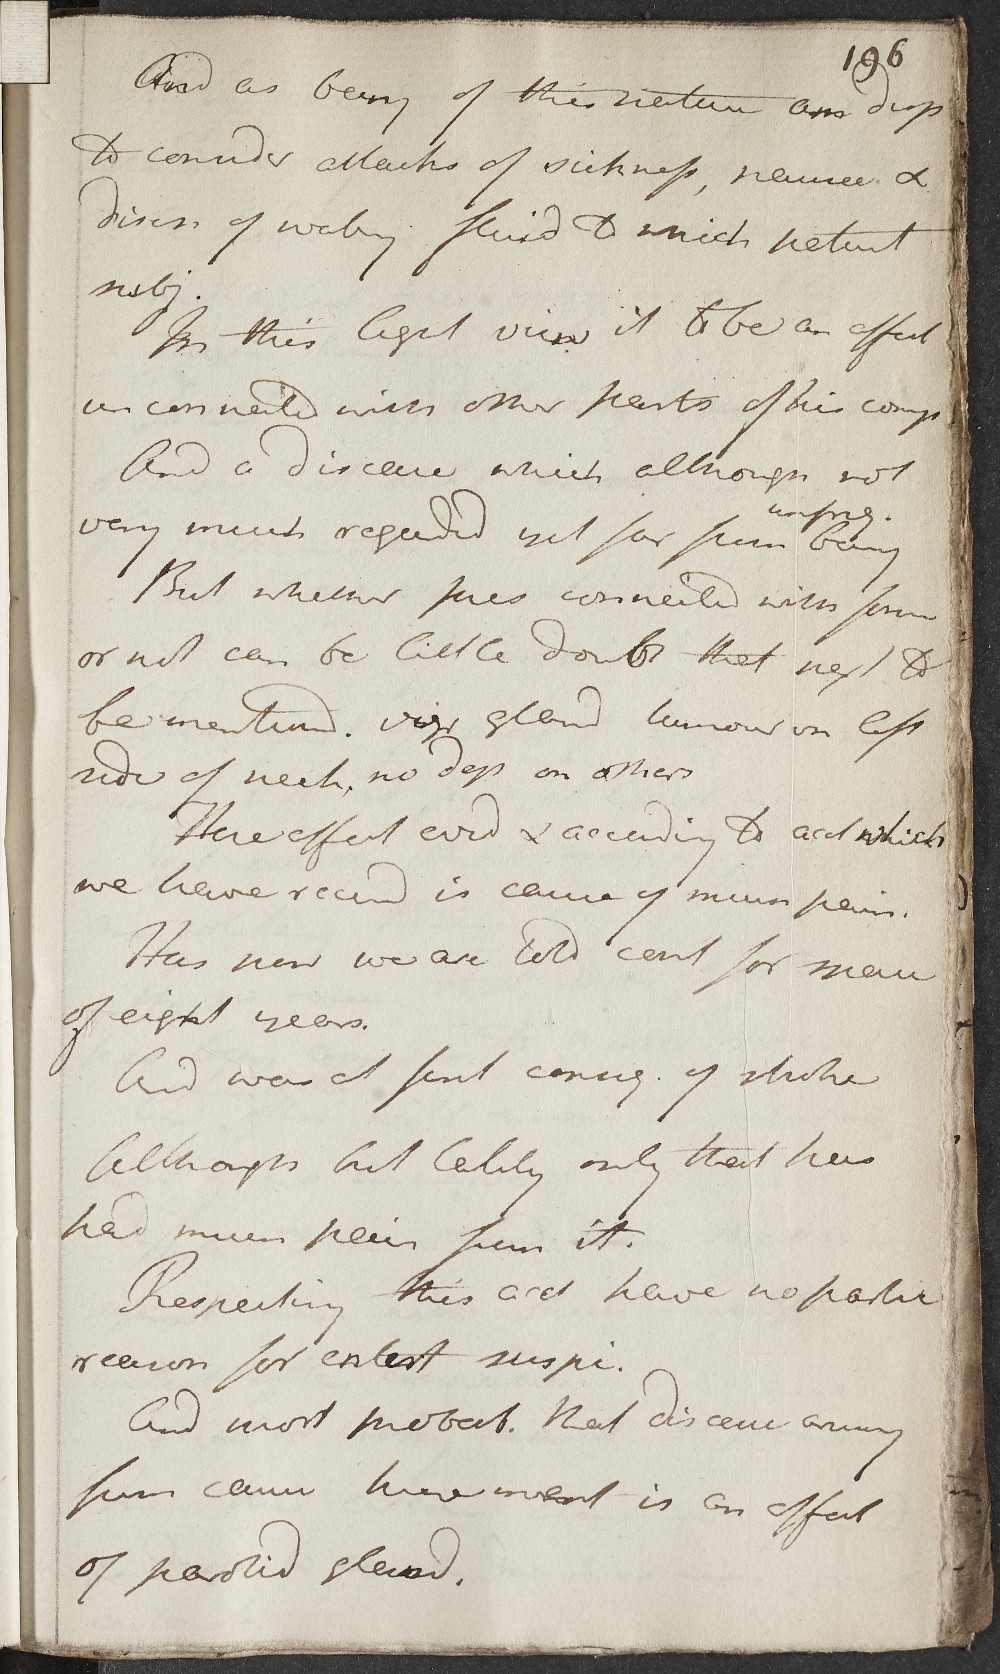 196
And as being of this nature am disp
to consider attacks of sickness, nausea &
disch of watery fluid to which patient
subj.
In this light view it to be an affect
unconnected with other parts of his comp
And a disease which although not
very much regarded yet far from being
unfreq.
But whether pres connected with form
or not can be little doubt that next to
be mentiond. viz gland tumour on left
side of neck, no dep on others
Here affect evid & according to acct which
we have receivd is cause of much pain.
Has now we are told cont for space
of eight years.
And was at first conseq. of stroke
Although but lately only that has
had much pain from it.
Respecting this acct have no partic
reason for entert suspi.
And most probab. that disease arising
from cause here ment is an affect
of parotid gland.